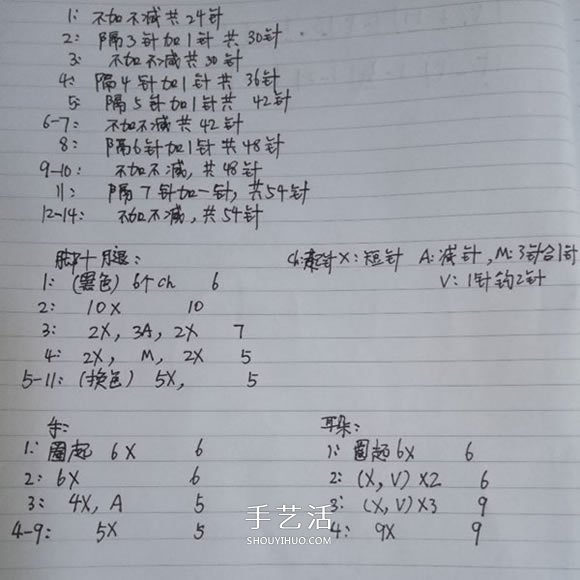 1: 不加不减共24针
2: 隔3针加1针共30针.
3: 不加不减共30针
4: 隔4针加1针共36针
5: 隔5针加1针共42针
6-7: 不加不减共42针
8: 隔6针加1针共48针
9-10: 不加不减,共48针
11: 隔7针加一针,共54针
12-14: 不加不减,共54针
脚+腿: ch: X:短针 A:减针,M:3针合1针
V:1针钩2针
1: (黑色) 6个ch 6
2: 10X 10
3: 2X, 3A, 2X 7
4: 2X, M, 2X 5
5-11: (换色) 5X, 5
手:
1: 圈起 6X 6
2: 6X 6
3: 4X, A 5
4-9: 5X 5
耳朵:
1: 圈起6X 6
2: (X,V)X2 6
3: (X,V)X3 9
4: 9X 9
手艺活
SHOUYIHUO.COM